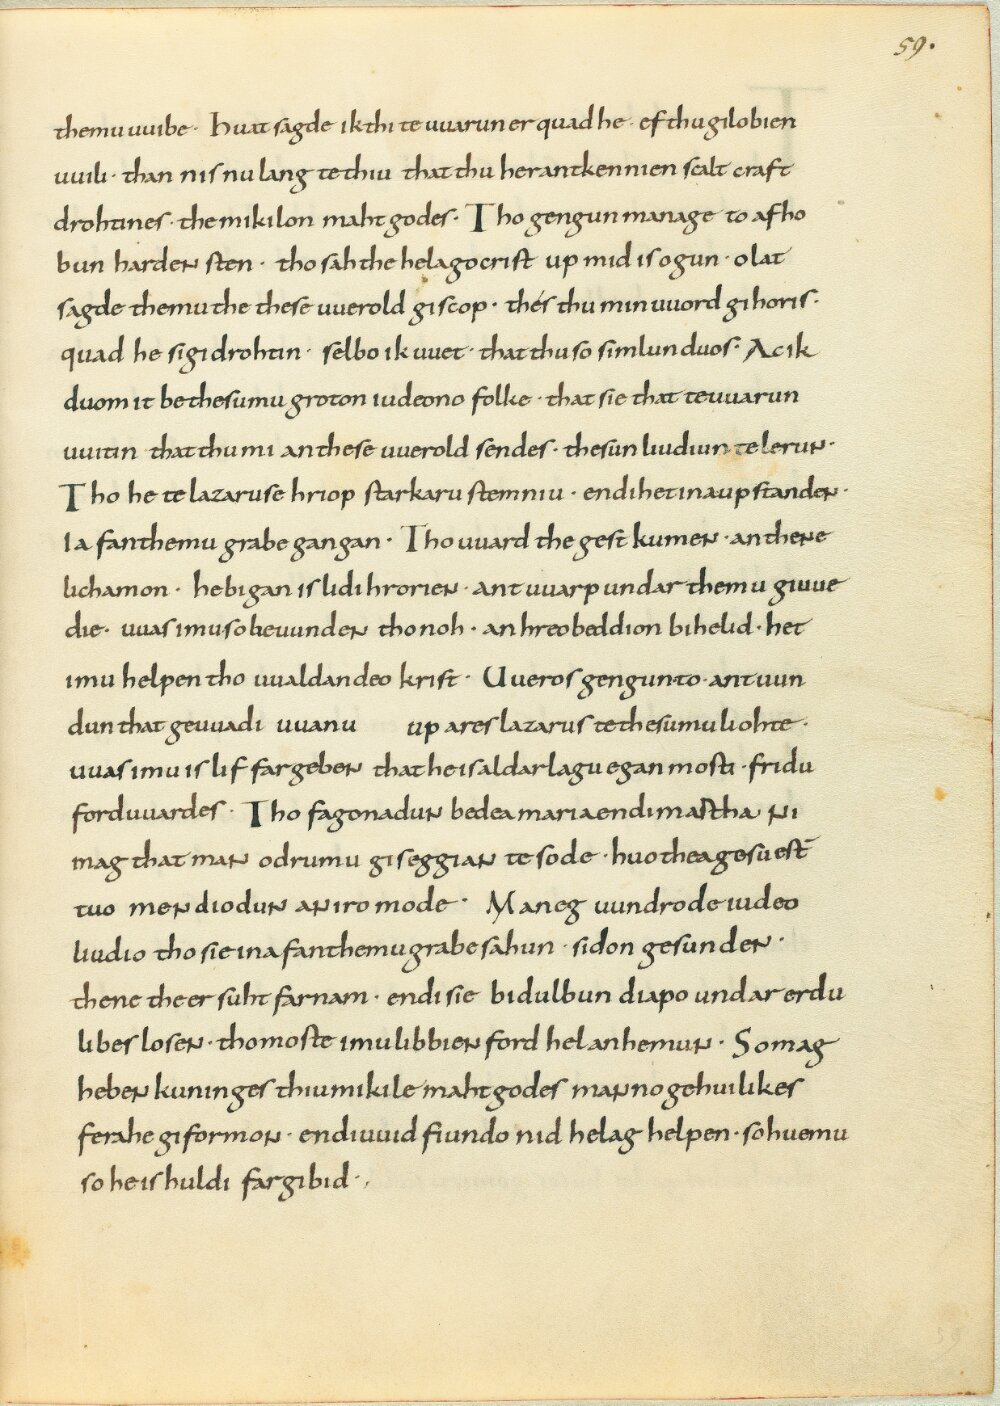 59.
themu uuibe · Huat sagde ik thi te uuarun er quad he · ef thu gilobien
uuili · than nis nu lang te thiu that thu her antkennien scalt craft
drohtines · the mikilon maht godes · Tho gengun manage to afho
bun harden sten · tho sah the helago crist up mid is ogun · olat
sagde themu the these uuerold giscop · thés thu min uuord gihoris ·
quad he sigidrohtin · selbo ik uuet · that thu so simlun duos · Ac ik
duom it be thesumu groton iudeono folke · that sie that te uuarun
uuitin that thu mi an these uuerold sendes · thesun liudiun te lerun ·
Tho he te lazaruse hriop starkaru stemniu · endi het ina up standen ·
Ia fan themu grabe gangan · Tho uuard the gest kumen · an thene
lichamon · he bigan is lidi hrorien · antuuarp undar themu giuue
die · uuas imu so beuunden tho noh · an hreobeddion bihelid · het
imu helpen tho uualdandeo krist · Uueros gengun to · antuun
dun that geuuadi uuanu up ares lazarus te thesumu liohte ·
uuas imu is lif fargeben that he is aldarlagu egan mosti · fridu
forduuardes · Tho fagonadun bedea maria endi martha ni
mag that man odrumu giseggian te sode · huo thea gesuest̄
tuo mendiodun an iro mode · Maneg uundrode iudeo
liudio tho sie ina fan themu grabe sahun · sidon gesunden ·
thene the er suht farnam · endi sie bidulbun diapo undar erdu
libes losen · tho moste imu libbien ford hel an hemun · So mag
hebenkuninges thiu mikile maht godes manno gehuilikes
ferahe giformon · endi uuid fiundo nid helag helpen · so huemu
so he is huldi fargibid ·